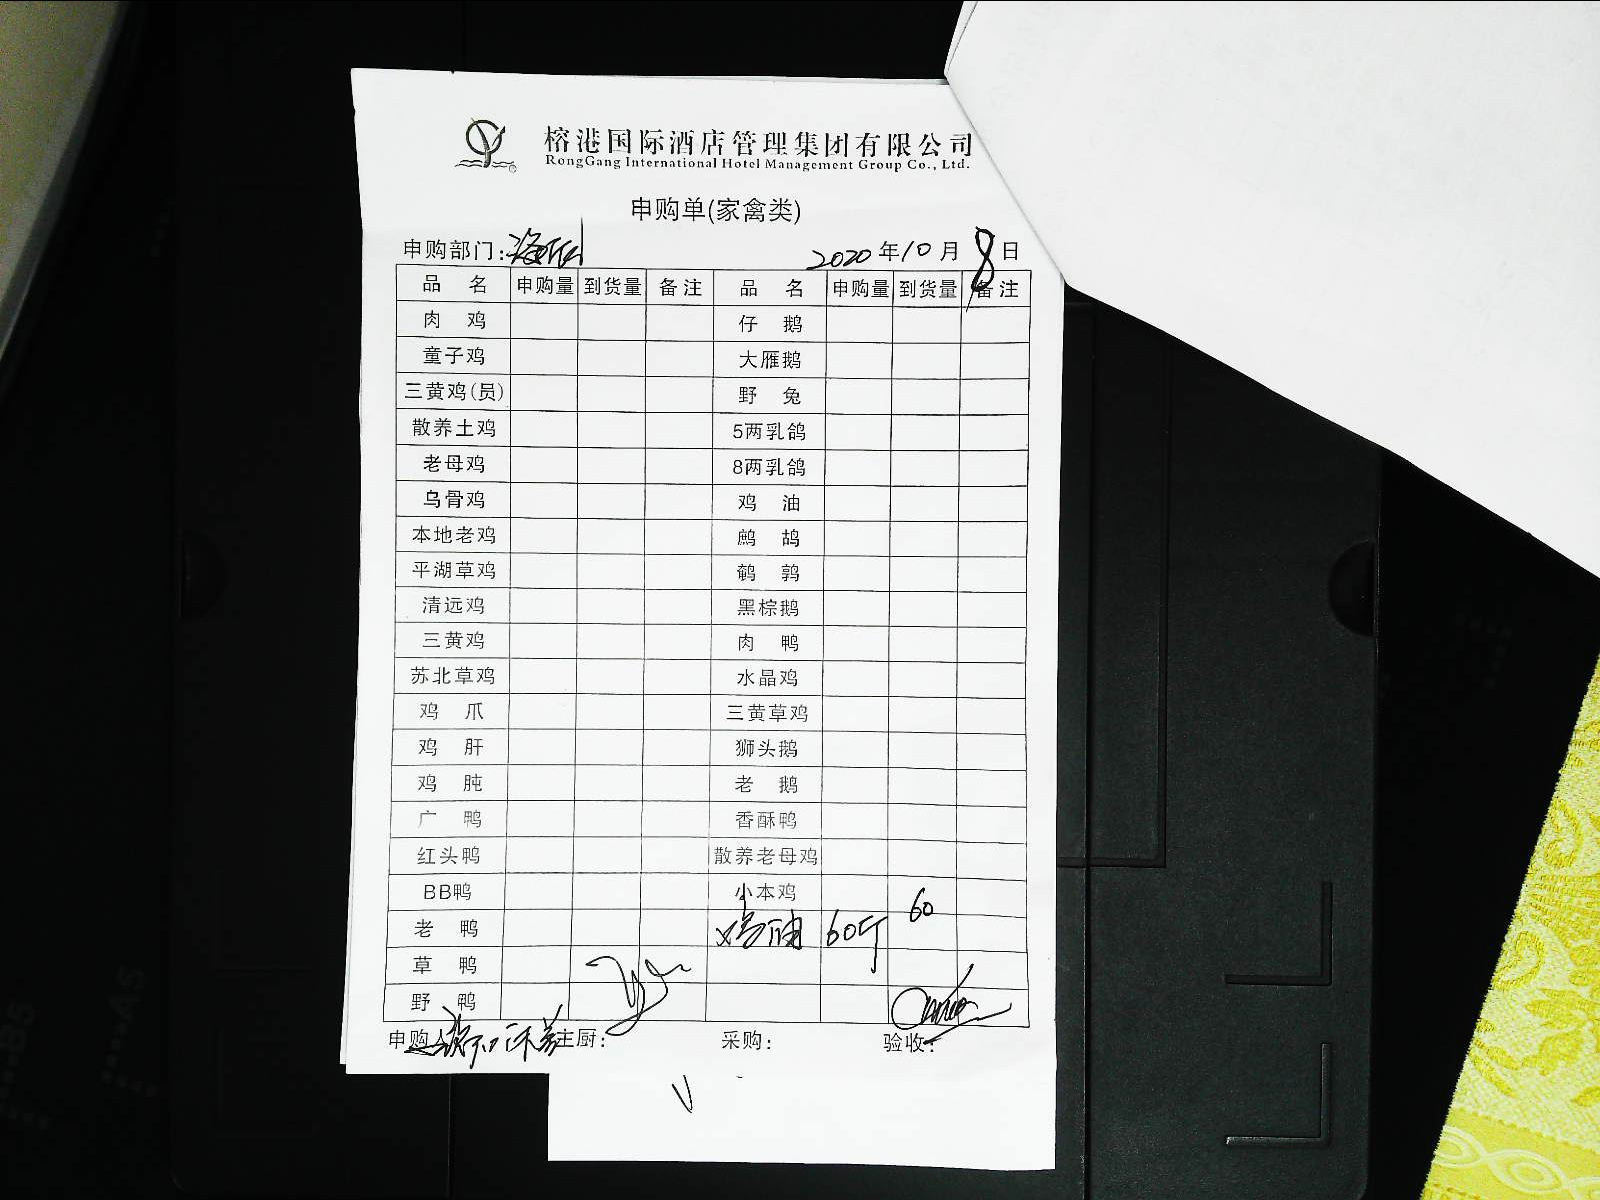 榕港国际酒店管理集团有限公司
RongGang International Hotel Management Group Co., Ltd.
申购单(家禽类)
申购部门: 2020年10月8日
品名 申购量 到货量 备注 品名 申购量 到货量 备注
肉鸡 仔鹅
童子鸡 大雁鹅
三黄鸡(员) 野兔
散养土鸡 5两乳鸽
老母鸡 8两乳鸽
乌骨鸡 鸡油
本地老鸡 鹧鸪
平湖草鸡 鹌鹑
清远鸡 黑棕鹅
三黄鸡 肉鸭
苏北草鸡 水晶鸡
鸡爪 三黄草鸡
鸡肝 狮头鹅
鸡肫 老鹅
广鸭 香酥鸭
红头鸭 散养老母鸡
BB鸭 小本鸡
老鸭 鸡油 60斤 60
草鸭
野鸭
申购人 主厨: 采购: 验收: